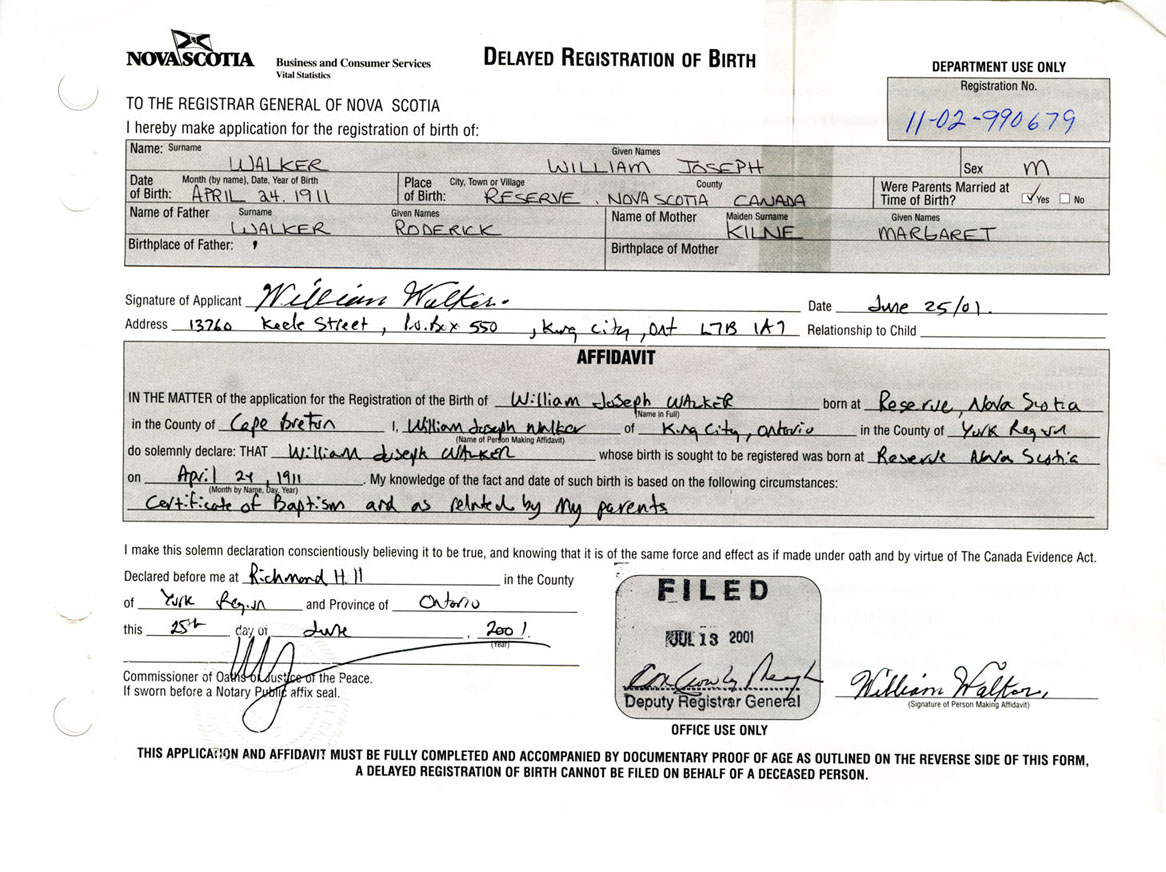 NOVA SCOTIA
Business and Consumer Services
Vital Statistics
DELAYED REGISTRATION OF BIRTH
DEPARTMENT USE ONLY
Registration No.
11-02-990679
TO THE REGISTRAR GENERAL OF NOVA SCOTIA
I hereby make application for the registration of birth of:
Name: Surname Given Names
WALKER WILLIAM JOSEPH Sex M
Date of Birth: Month (by name), Date, Year of Birth APRIL 24. 1911 Place of Birth: City, Town or Village RESERVE, County NOVA SCOTIA CANADA Were Parents Married at Time of Birth? ✓ Yes No
Name of Father Surname WALKER Given Names RODERICK Name of Mother Maiden Surname KILNE Given Names MARGARET
Birthplace of Father: Birthplace of Mother
Signature of Applicant William Walker. Date June 25/01.
Address 13760 Keele Street, P.O. Box 550, King City, Ont L7B 1A7 Relationship to Child
AFFIDAVIT
IN THE MATTER of the application for the Registration of the Birth of William Joseph WALKER born at Reserve, Nova Scotia
(Name in Full)
in the County of Cape Breton I, William Joseph Walker of King City, Ontario in the County of York Region
(Name of Person Making Affidavit)
do solemnly declare: THAT William Joseph WALKER whose birth is sought to be registered was born at Reserve Nova Scotia
on April 24, 1911. My knowledge of the fact and date of such birth is based on the following circumstances:
(Month by Name, Day, Year)
Certificate of Baptism and as related by my parents
I make this solemn declaration conscientiously believing it to be true, and knowing that it is of the same force and effect as if made under oath and by virtue of The Canada Evidence Act.
Declared before me at Richmond Hill in the County
of York Region and Province of Ontario
this 25th day of June, 2001.
(Year)
Commissioner of Oaths or Justice of the Peace.
If sworn before a Notary Public affix seal.
FILED
JUL 13 2001
Deputy Registrar General
OFFICE USE ONLY
William Walker
(Signature of Person Making Affidavit)
THIS APPLICATION AND AFFIDAVIT MUST BE FULLY COMPLETED AND ACCOMPANIED BY DOCUMENTARY PROOF OF AGE AS OUTLINED ON THE REVERSE SIDE OF THIS FORM,
A DELAYED REGISTRATION OF BIRTH CANNOT BE FILED ON BEHALF OF A DECEASED PERSON.